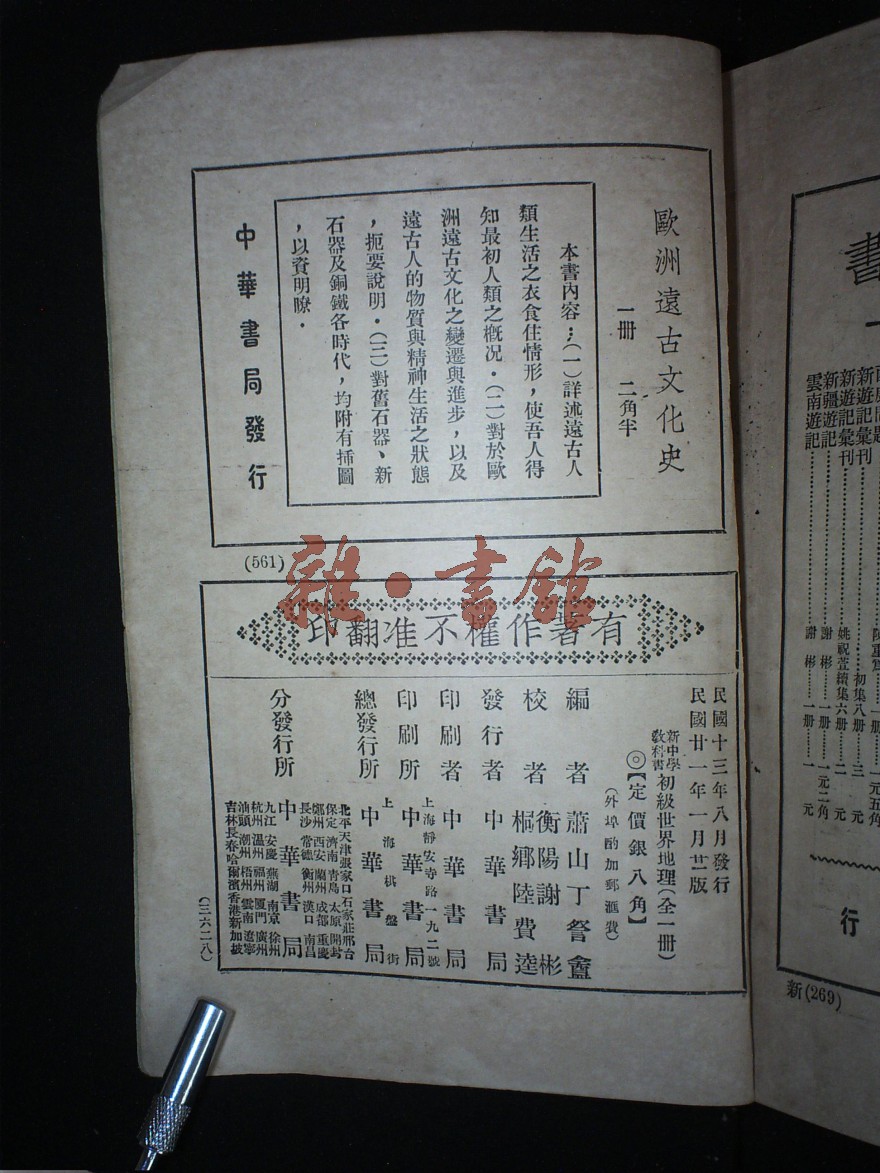 歐洲遠古文化史
一冊　二角半
本書內容：（一）詳述遠古人
類生活之衣食住情形，使吾人得
知最初人類之槪况．（二）對於歐
洲遠古文化之變遷與進步，以及
遠古人的物質與精神生活之狀態
，扼要說明．（三）對舊石器、新
石器及銅鐵各時代，均附有揷圖
，以資明瞭．
中華書局發行
(561)
雜·書館
印翻准不權作著有
民國十三年八月發行
民國廿一年一月廿一版
新中學敎科書初級世界地理（全一冊）
◎【定價銀八角】
（外埠酌加郵滙費）
編者　蕭山丁詧盦
校者　衡陽謝彬
桐鄉陸費逵
發行者　中華書局
印刷者　中華書局
上海靜安寺路一九二號
印刷所　中華書局
上海棋盤街
總發行所　中華書局
分發行所　中華書局
北平 天津 張家口 石家莊 邢台
保定 濟南 靑島 太原 開封
鄭州 西安 蘭州 成都 重慶
長沙 常德 衡州 漢口 南昌
九江 安慶 蕪湖 南京 徐州
杭州 溫州 福州 廈門 廣州
汕頭 潮州 梧州 雲南 遼寧
吉林 長春 哈爾濱 香港 新加坡
（三六二八）
書
新遊記彙刊……初集八冊…三元
新遊記彙刊……姚祝萱續集六冊…二元
新疆遊記……謝彬…一冊…一元二角
雲南遊記……謝彬…一冊…一元
行
新(269)